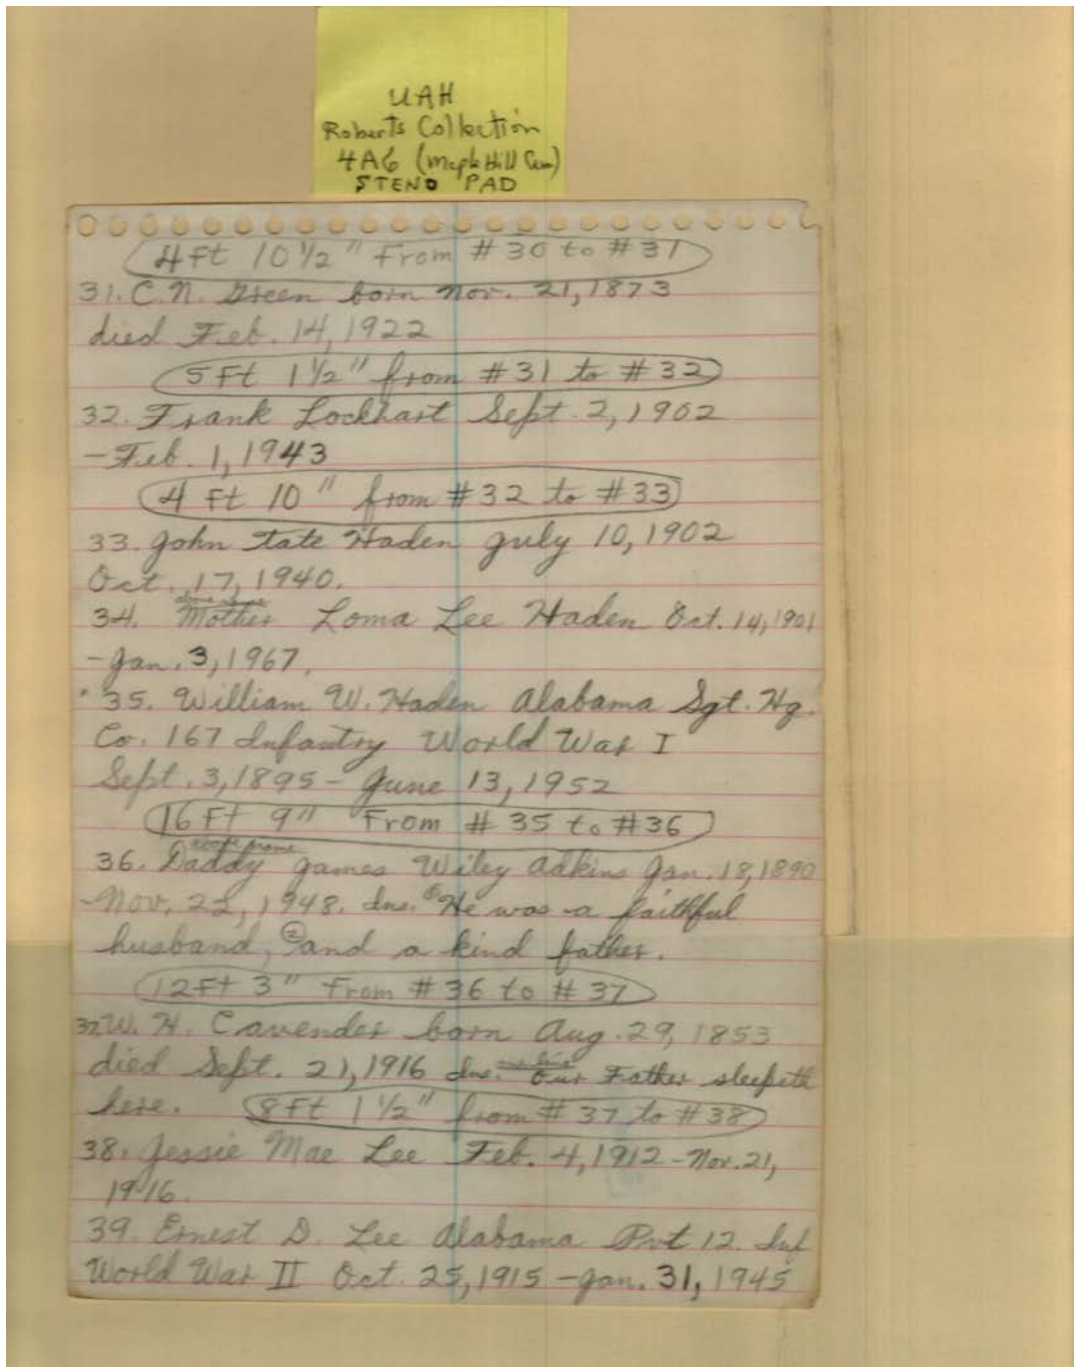 UAH
Roberts Collection
4A6 (Maple Hill Cem)
STENO PAD
4 Ft 10 1/2" From #30 to #31
31. C.N. Green born Nov. 21, 1873
died Feb. 14, 1922
5 Ft 1 1/2" from #31 to #32
32. Frank Lockhart Sept. 2, 1902
- Feb. 1, 1943
4 Ft 10" from #32 to #33
33. John Tate Haden July 10, 1902
Oct. 17, 1940.
above name
34. Mother Loma Lee Haden Oct. 14, 1901
- Jan. 3, 1967.
35. William W. Haden Alabama Sgt. Hq.
Co. 167 Infantry World War I
Sept. 3, 1895 - June 13, 1952
16 Ft 9" From #35 to #36
above name
36. Daddy James Wiley Adkins Jan. 18, 1890
- Nov. 22, 1948. Ins. ① He was a faithful
husband, ② and a kind father.
12 Ft 3" From #36 to #37
37. W. H. Cavender born Aug. 29, 1853
one line
died Sept. 21, 1916 Ins. Our Father sleepeth
here. 8 Ft 1 1/2" from #37 to #38
38. Jessie Mae Lee Feb. 4, 1912 - Nov. 21,
39. Ernest D. Lee Alabama Pvt 12. Inf
World War II Oct. 25, 1915 - Jan. 31, 1945